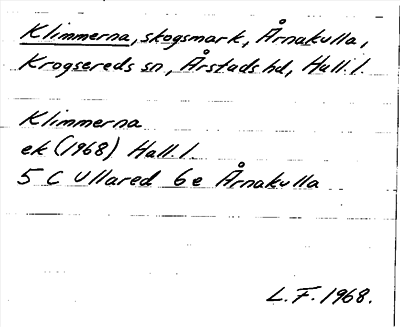 Klimmerna, skogsmark, Årnakulla,
Krogsereds sn, Årstads hd, Hall. l.
Klimmerna
ek (1968) Hall. l.
5 C Ullared 6 e Årnakulla
L. F. 1968.